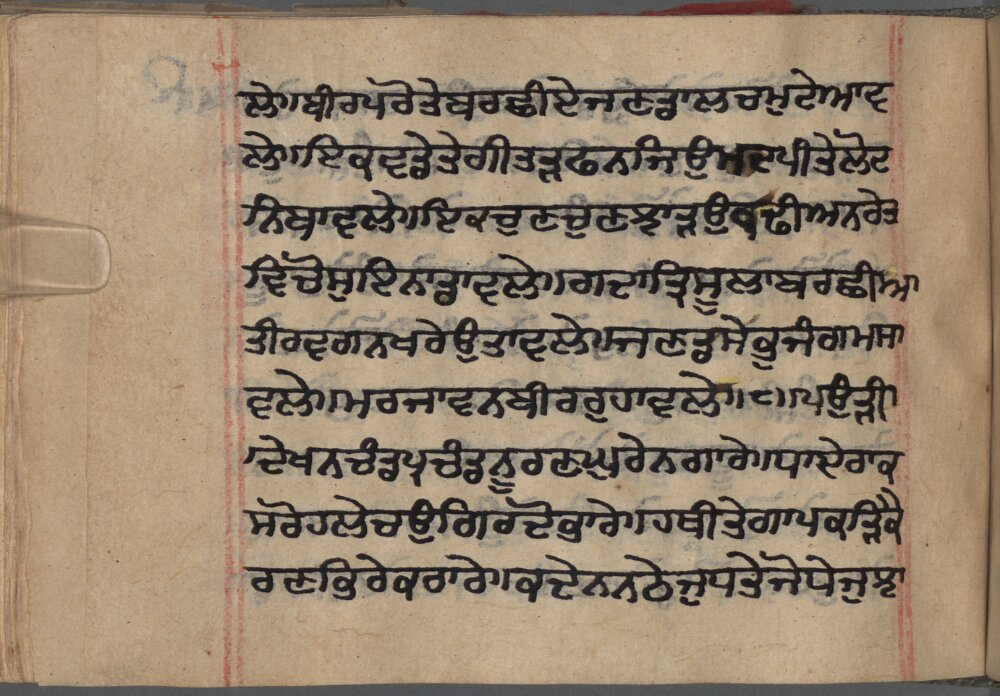 ਲੇ।ਬੀਰਪਰੋਤੇਬਰਛੀਏਜਣਡਾਲਚਮੁਟੇਆਵ
ਲੇ।ਇਕਵਡੇਤੇਗੀਤੜਫਨਜਿਉਮਦਪੀਤੇਲੋਟ
ਨਿਬਾਵਲੇ।ਇਕਚੁਣਚੁਣਝਾੜਉਕਢੀਅਨਰੇਤ
ਵਿਚੋਸੁਇਨਾਡਾਵਲੇ।ਗਦਾਤ੍ਰਿਸੂਲਾਬਰਛੀਆ
ਤੀਰਵਗਨਖਰੇਉਤਾਵਲੇ।ਜਣਡਸੇਭੁਜੰਗਮਸਾ
ਵਲੇ।ਮਰਜਾਵਨਬੀਰਰੁਹਾਵਲੇ।੮।ਪਉੜੀ
।ਦੇਖਨਚੰਡਪ੍ਰਚੰਡਨੂਰਣਘੁਰੇਨਗਾਰੇ।ਧਾਏਰਾਕ
ਸਰੋਹਲੇਚਉਗਿਰਦੋਭਾਰੇ।ਹਥੀਤੇਗਾਪਕੜਿਕੈ
ਰਣਭਿਰੇਕਰਾਰੇ।ਕਦੇਨਨਠੇਜੁਧਤੇਜੋਧੇਜੁਝਾ